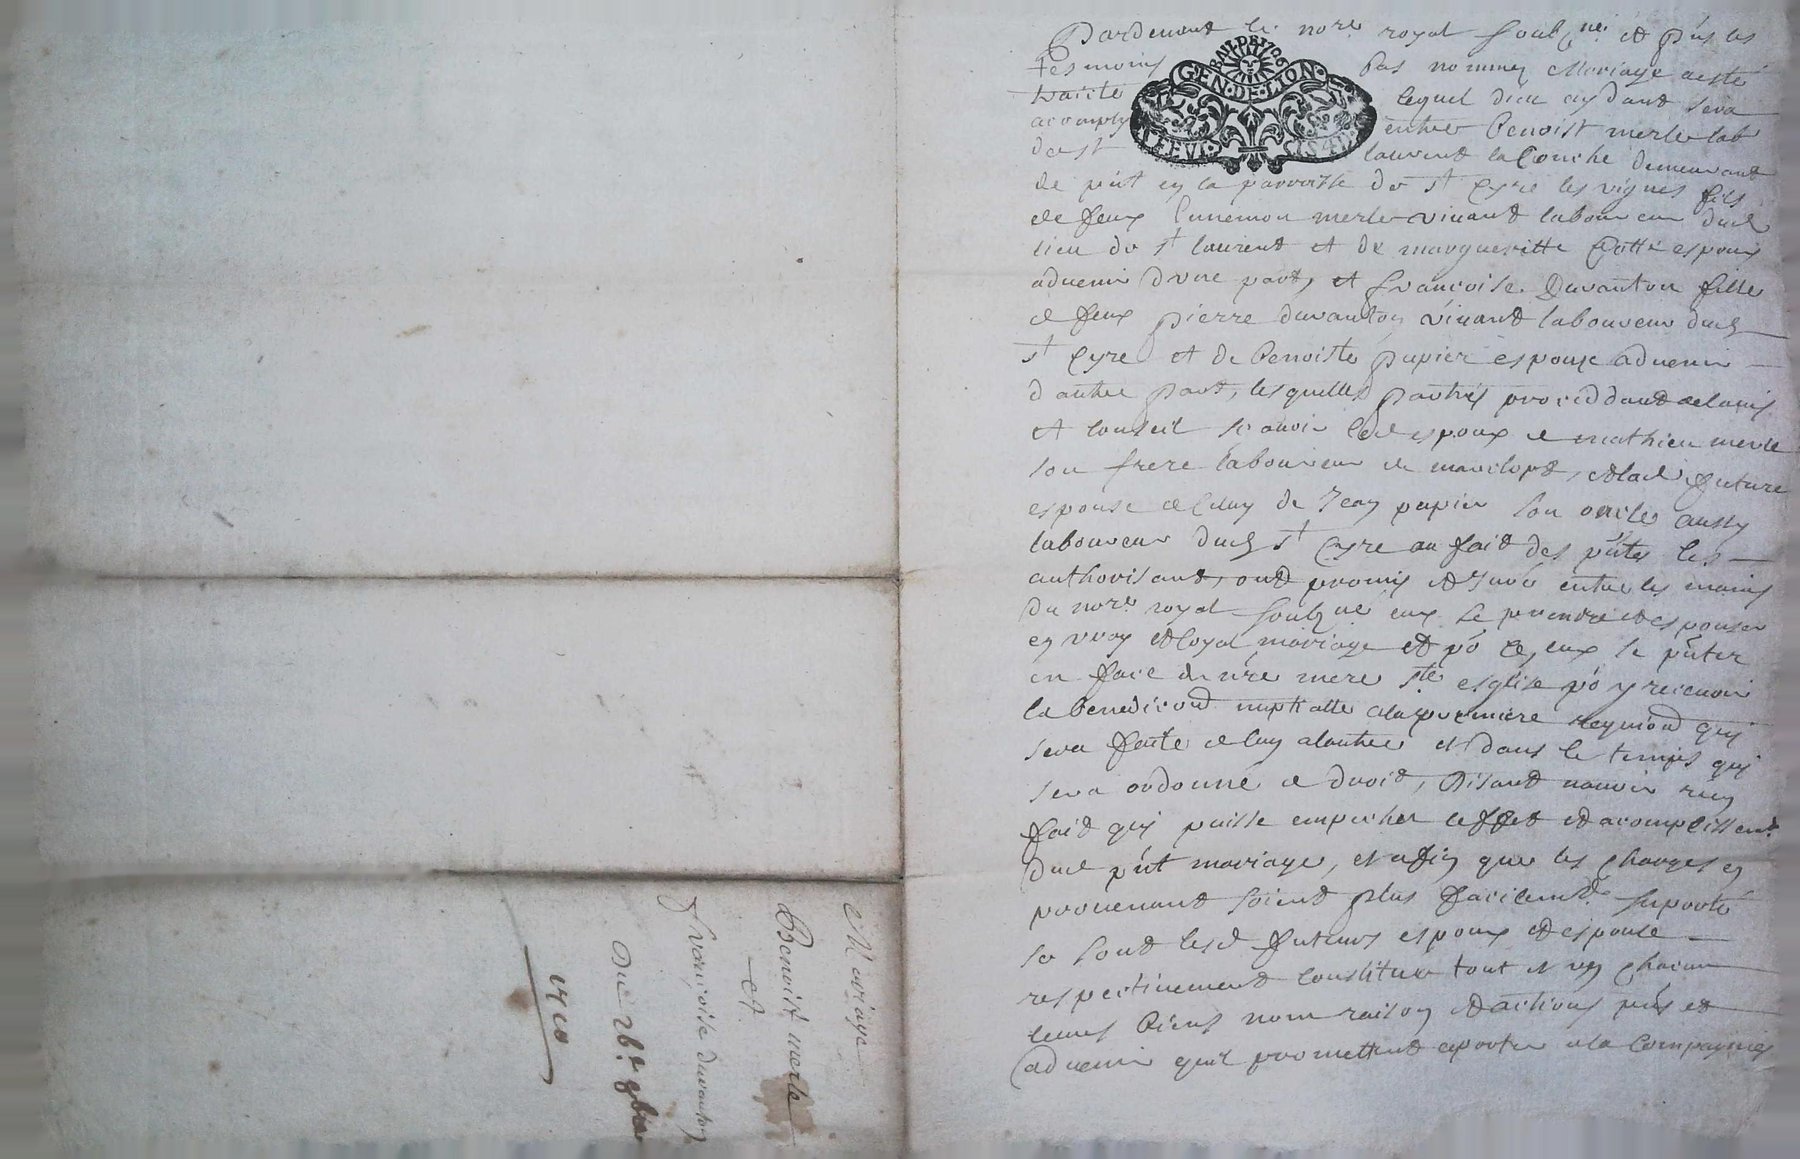 Pardevant le nore royal soubzné et pnts les
tesmoins bas nommez Mariage a esté
traicté lequel dieu aydant sera
acomply entre Benoist merle lab
de st laurent la Conche demeurant
de pnt en la parroisse de st Cyre les vignes fils
de feux Ennemon merle vivant laboureur dud
lieu de st laurent et de margueritte espoux
advenir d'une part, et francoise Duvanton fille
de feux pierre duvanton vivant laboureur dud
st Cyre et de Benoiste papier espouze advenir
d'autre part, lesquelles parties proceddant de ladvis
et conseil scavoir led espoux de mathieu merle
son frere laboureur de marclopt, et lad future
espouse de celuy de Jean papier son oncle aussy
laboureur dud st Cyre au fait des pntes les
authorisant, ont promis et juré entre les mains
du nore royal soubzné eux se prendre et espouser
en vray et loyal mariage et po ce eux se pnter
en face de nre mere ste esglise po y recevoir
la benediond nuptialle a la premiere requiond qui
sera faite de luy a lautre et dans le temps qui
sera ordonne de droit, disant navoir rien
fait qui puisse empecher leffet et acomplissemt
dud pnt mariage, et affin que les charges en
provenant soient plus facilemt suporté
se sont lesd futurs espoux et espouse
respectivement constitue tout et un chacun
leurs biens nom raison et actions pnts et
advenir quil promettent aporter a la Compagnie
BAIL DE 1706
GEN·DE·LION
Mariage
Benoist merle
et
francoise duvanton
Du 26e 9bre
1710